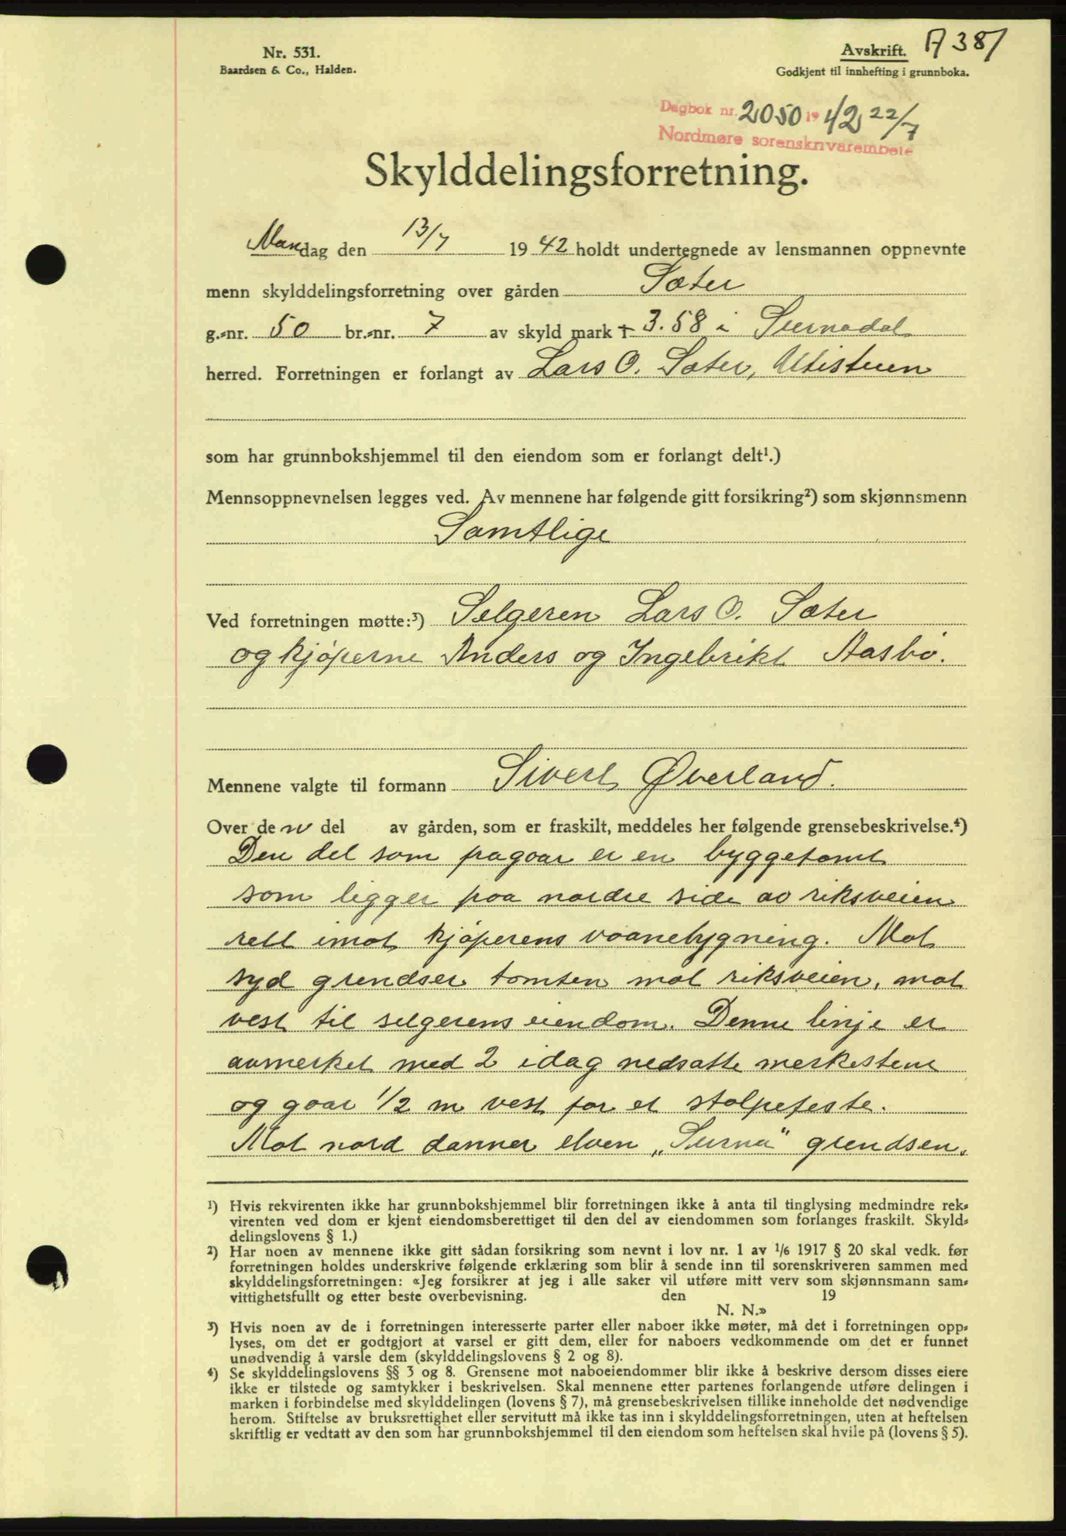 Nr. 531.
Baardsen & Co., Halden.
Avskrift.
Godkjent til innhefting i grunnboka.
A 381
Dagbok nr. 2050 19 42 22/7
Nordmøre sorenskriverembete
Skylddelingsforretning.
Mandag den 13/7 1942 holdt undertegnede av lensmannen oppnevnte
menn skylddelingsforretning over gården Sæter
g.-nr. 50 br.-nr. 7 av skyld mark + 3.58 i Surnadal
herred. Forretningen er forlangt av Lars O. Sæter, Utistuen
som har grunnbokshjemmel til den eiendom som er forlangt delt¹.)
Mennsoppnevnelsen legges ved. Av mennene har følgende gitt forsikring²) som skjønnsmenn
Samtlige
Ved forretningen møtte:³) Selgeren Lars O. Sæter
og kjøperne Anders og Ingebrikt Aasbø.
Mennene valgte til formann Sivert Øverland.
Over den del av gården, som er fraskilt, meddeles her følgende grensebeskrivelse.⁴)
Den del som fragaar er en byggetomt
som ligger paa nordre side av riksveien
rett imot kjøperens vaanebygning. Mot
syd grendser tomten mot riksveien, mot
vest til selgerens eiendom. Denne linje er
avmerket med 2 idag nedsatte merkestene
og gaar 1/2 m vest for et stolpefeste.
Mot nord danner elven „Surna" grendsen.
¹) Hvis rekvirenten ikke har grunnbokshjemmel blir forretningen ikke å anta til tinglysing medmindre rek-
virenten ved dom er kjent eiendomsberettiget til den del av eiendommen som forlanges fraskilt. Skyld-
delingslovens § 1.)
²) Har noen av mennene ikke gitt sådan forsikring som nevnt i lov nr. 1 av 1/6 1917 § 20 skal vedk. før
forretningen holdes underskrive følgende erklæring som blir å sende inn til sorenskriveren sammen med
skylddelingsforretningen: «Jeg forsikrer at jeg i alle saker vil utføre mitt verv som skjønnsmann sam-
vittighetsfullt og etter beste overbevisning. den 19
N. N.»
³) Hvis noen av de i forretningen interesserte parter eller naboer ikke møter, må det i forretningen opp-
lyses, om det er godtgjort at varsel er gitt dem, eller for naboers vedkommende om det er funnet
unødvendig å varsle dem (skylddelingslovens § 2 og 8).
⁴) Se skylddelingslovens §§ 3 og 8. Grensene mot naboeiendommer blir ikke å beskrive dersom disses eiere
ikke er tilstede og samtykker i beskrivelsen. Skal mennene etter partenes forlangende utføre delingen i
marken i forbindelse med skylddelingen (lovens § 7), må grensebeskrivelsen tillike inneholde det nødvendige
herom. Stiftelse av bruksrettighet eller servitutt må ikke tas inn i skylddelingsforretningen, uten at heftelsen
skriftlig er vedtatt av den som har grunnbokshjemmel til den eiendom som heftelsen skal hvile på (lovens § 5).